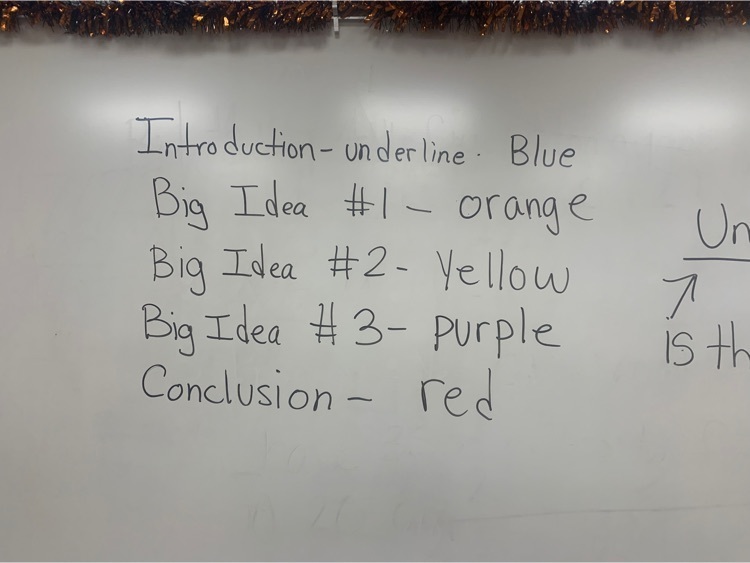 Introduction - underline. Blue
Big Idea #1 - orange
Big Idea #2 - Yellow
Big Idea #3 - purple
Conclusion - red
Un
is th